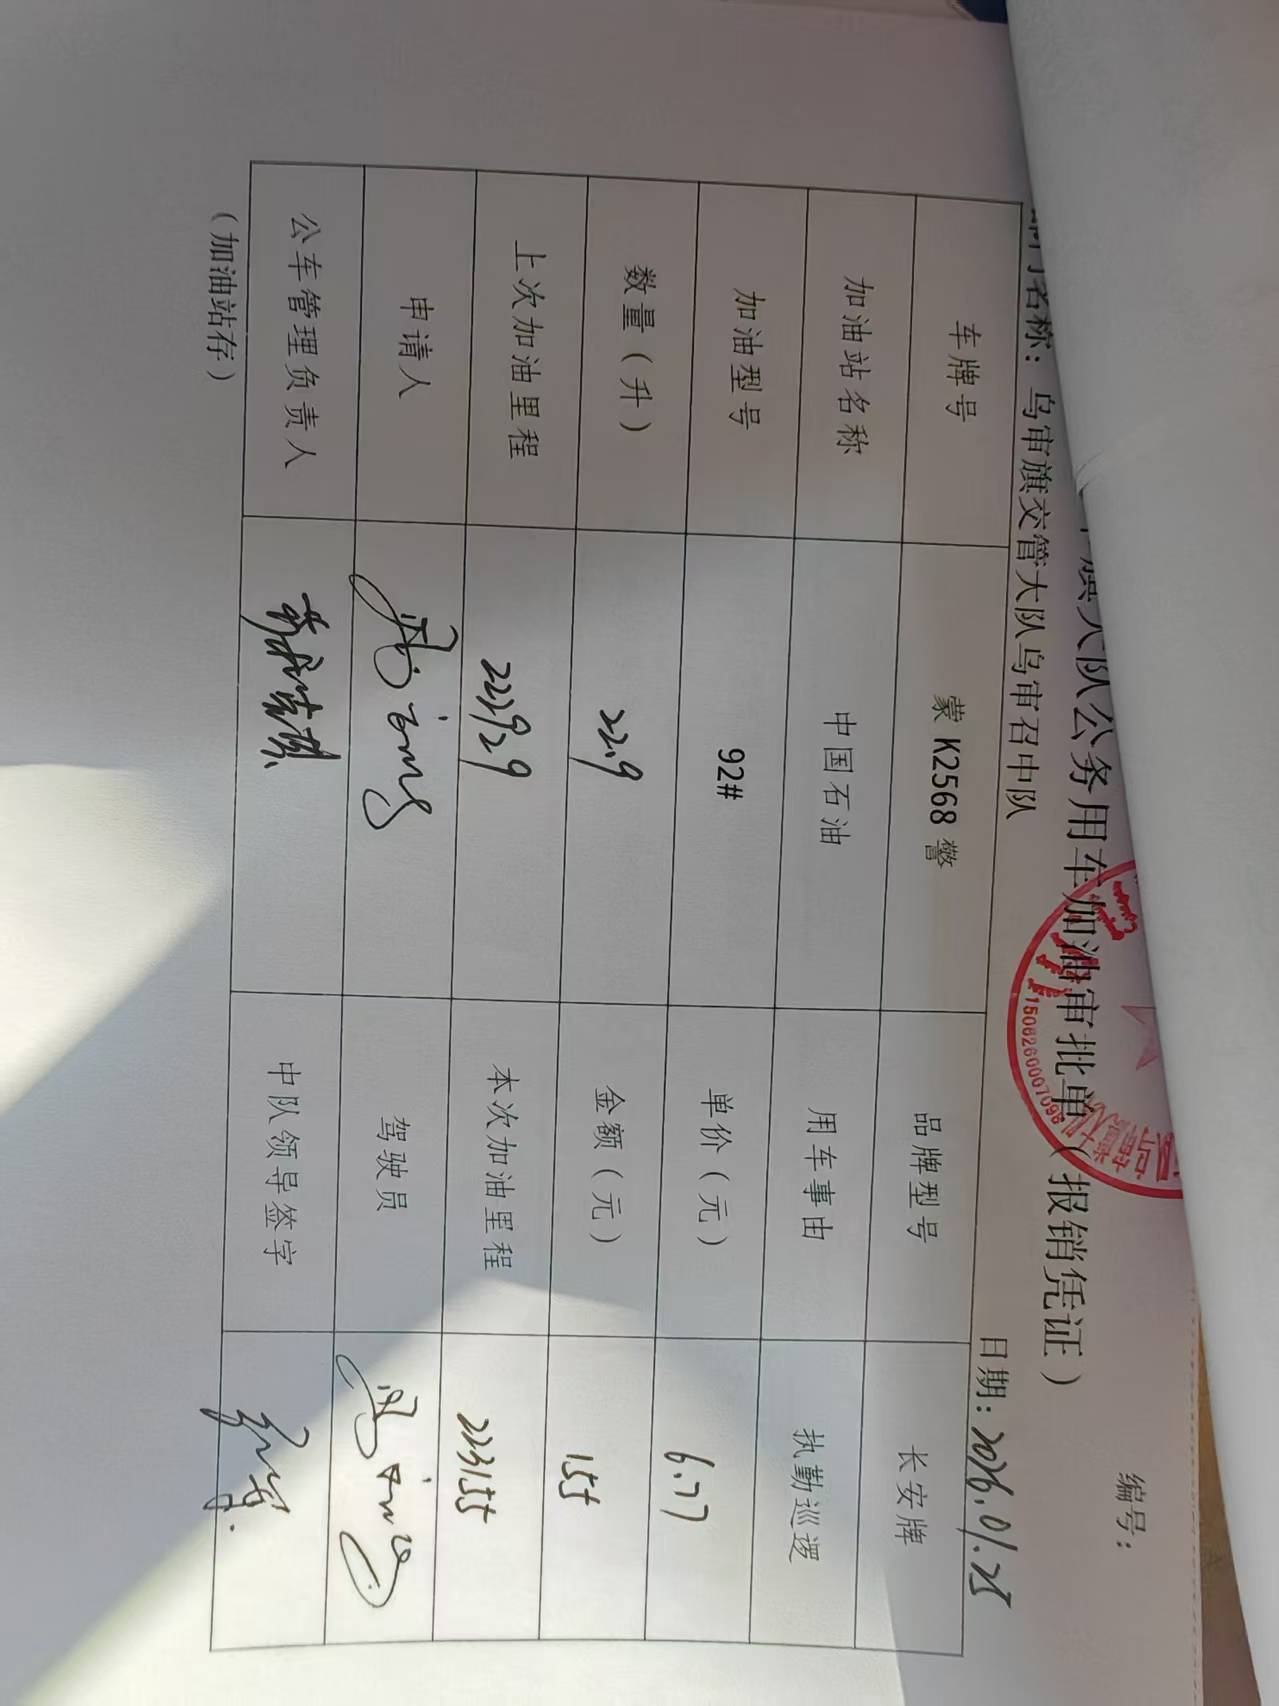 编号：
旗大队公务用车加油审批单（报销凭证）
部门名称：乌审旗交管大队乌审召中队 日期：2026.01.25
1506260007098
车牌号 蒙 K2568 警 品牌型号 长安牌
加油站名称 中国石油 用车事由 执勤巡逻
加油型号 92# 单价（元） 6.77
数量（升） 22.9 金额（元） 155
上次加油里程 222929 本次加油里程 223155
申请人 驾驶员
公车管理负责人 中队领导签字
（加油站存）